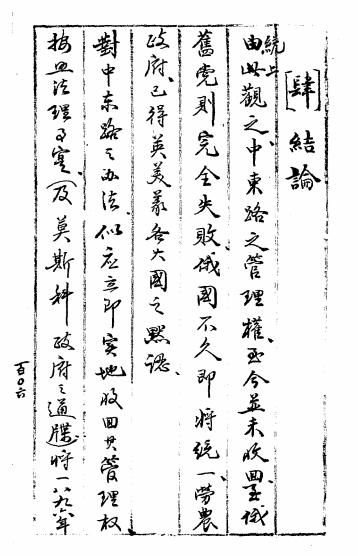 [肆] 結論
綜上
由此觀之、中東路之管理權、至今並未收回、至俄
舊党則完全失敗、俄國不久即將統一、勞農
政府、已得英美義各大國之默認、
對中东路之办法、似应立即实地收回其管理权
按照法理事實、(及莫斯科政府之通牒將一八九六年
百〇六